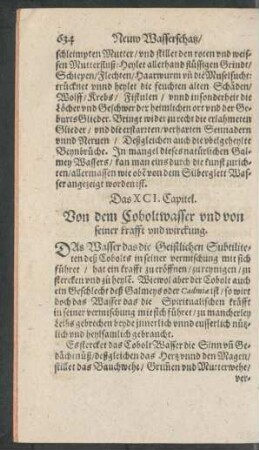 634 Neuw Wasserschatz/
schleimpten Mutter/ vnd stillet den roten vnd weis-
sen Mutterfluß. Heylet allerhand flüssigen Grindt/
Schiepen/ Flechten/ Haarwurm vñ die Muselsucht:
trücknet vnnd heylet die feuchten alten Schäden/
Wolff/ Krebs/ Fistulen/ vnnd in sonderheit die
Löcher vnd Geschwer der heimlichen ort vnd der vnder
Glieder. Bringt wider zurecht die erlahmeten
Glieder/ vnd die erstarrten/ verharten Sennadern
vnnd Neruen/ Deßgleichen auch die vbelgeheylete
Beynbrüche. In mangel dieses natürlichen Gal-
mey Wassers/ kan man eins durch die kunst zurich-
ten/ allermassen wie ob von dem Silberglett Was-
ser angezeigt worden ist.
Das XCI. Capitel.
Von dem Coboltwasser vnd von
seiner krafft vnd wirckung.
DAs Wasser das die Geistlichen Subtilite-
ten deß Cobolts in seiner vermischung mit sich
führet/ hat ein krafft zu eröffnen/ zu reynigen/ zu
stercken vnd zu heylē. Wiewol aber der Cobolt auch
ein Geschlecht deß Galmeys oder Cadmia ist/ so wirt
doch das Wasser das die Spiritualischen kräfft
in seiner vermischung mit sich führet/ zu mancherley
Leibs gebrechen beyde jnnerlich vnnd eusserlich nütz-
lich vnd heylsamlich gebraucht.
Es stercket das Cobolt Wasser die Sinn vñ Ge-
dächtnüß/ deßgleichen das Hertz vnnd den Magen/
stillet das Bauchwehe/ Grimen vnd Mutterwehe/
ver-